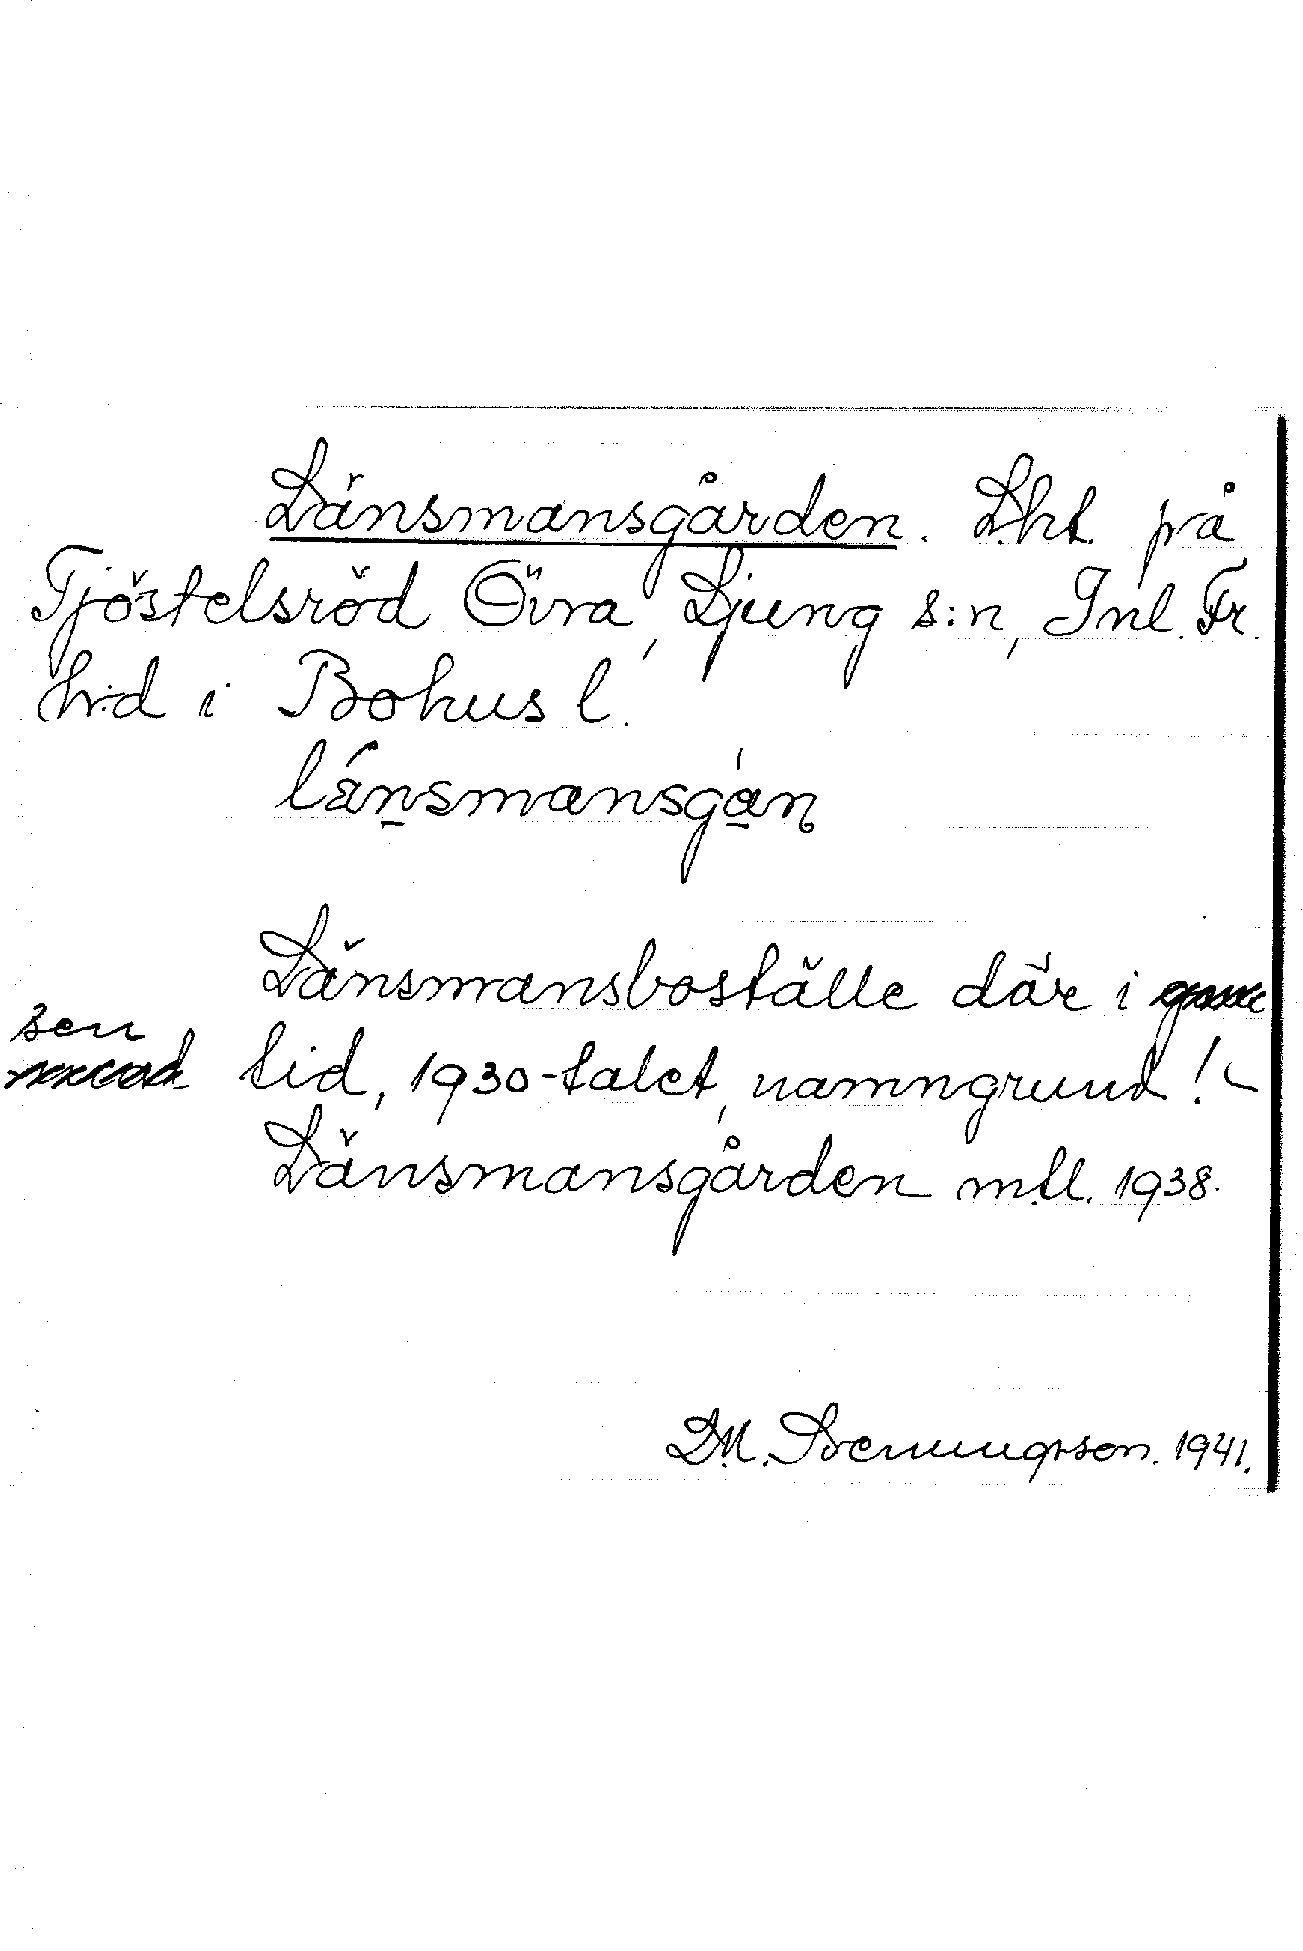 Länsmansgården. L.ht. på
Tjöstelsröd Övra, Ljung s:n, Inl. Fr.
h:d i Bohus l.
länsmansgån
Länsmansboställe där i
sen tid, 1930-talet, namngrund! -
Länsmansgården m.tl. 1938.
D.M. Svenungsson. 1941.